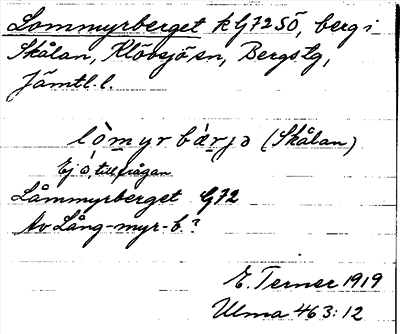 Lommyrberget k G72SÖ, berg i
Skålan, Klövsjö sn, Bergs tg,
Jämtl. l.
lòmyrbàrjə (Skålan)
Ej ó, tillfrågan
Låmmyrberget G72
Av Lång-myr-b.?
E. Terner 1919
Ulma 463:12